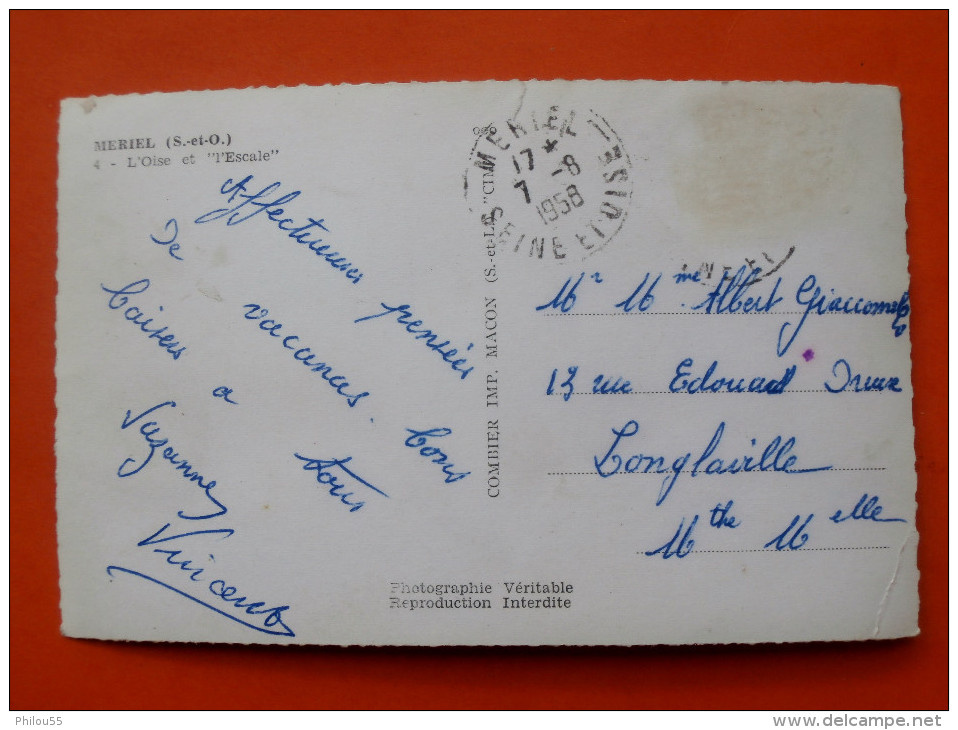 MERIEL (S.-et-O.)
4 - L'Oise et "l'Escale"
Affectueuses pensées
De vacances. bons
baisers a tous
Suzanne
Vincent
COMBIER IMP. MACON (S.-et-L.) "CIM"
MERIEL
17 *
7 -8
1958
SEINE ET OISE
NE ET
Mr Mme Albert Giacomelli
13 rue Edouard Dreux
Longlaville
Mthe Melle
Photographie Véritable
Reproduction Interdite
Philou55
http://www.delcampe.net